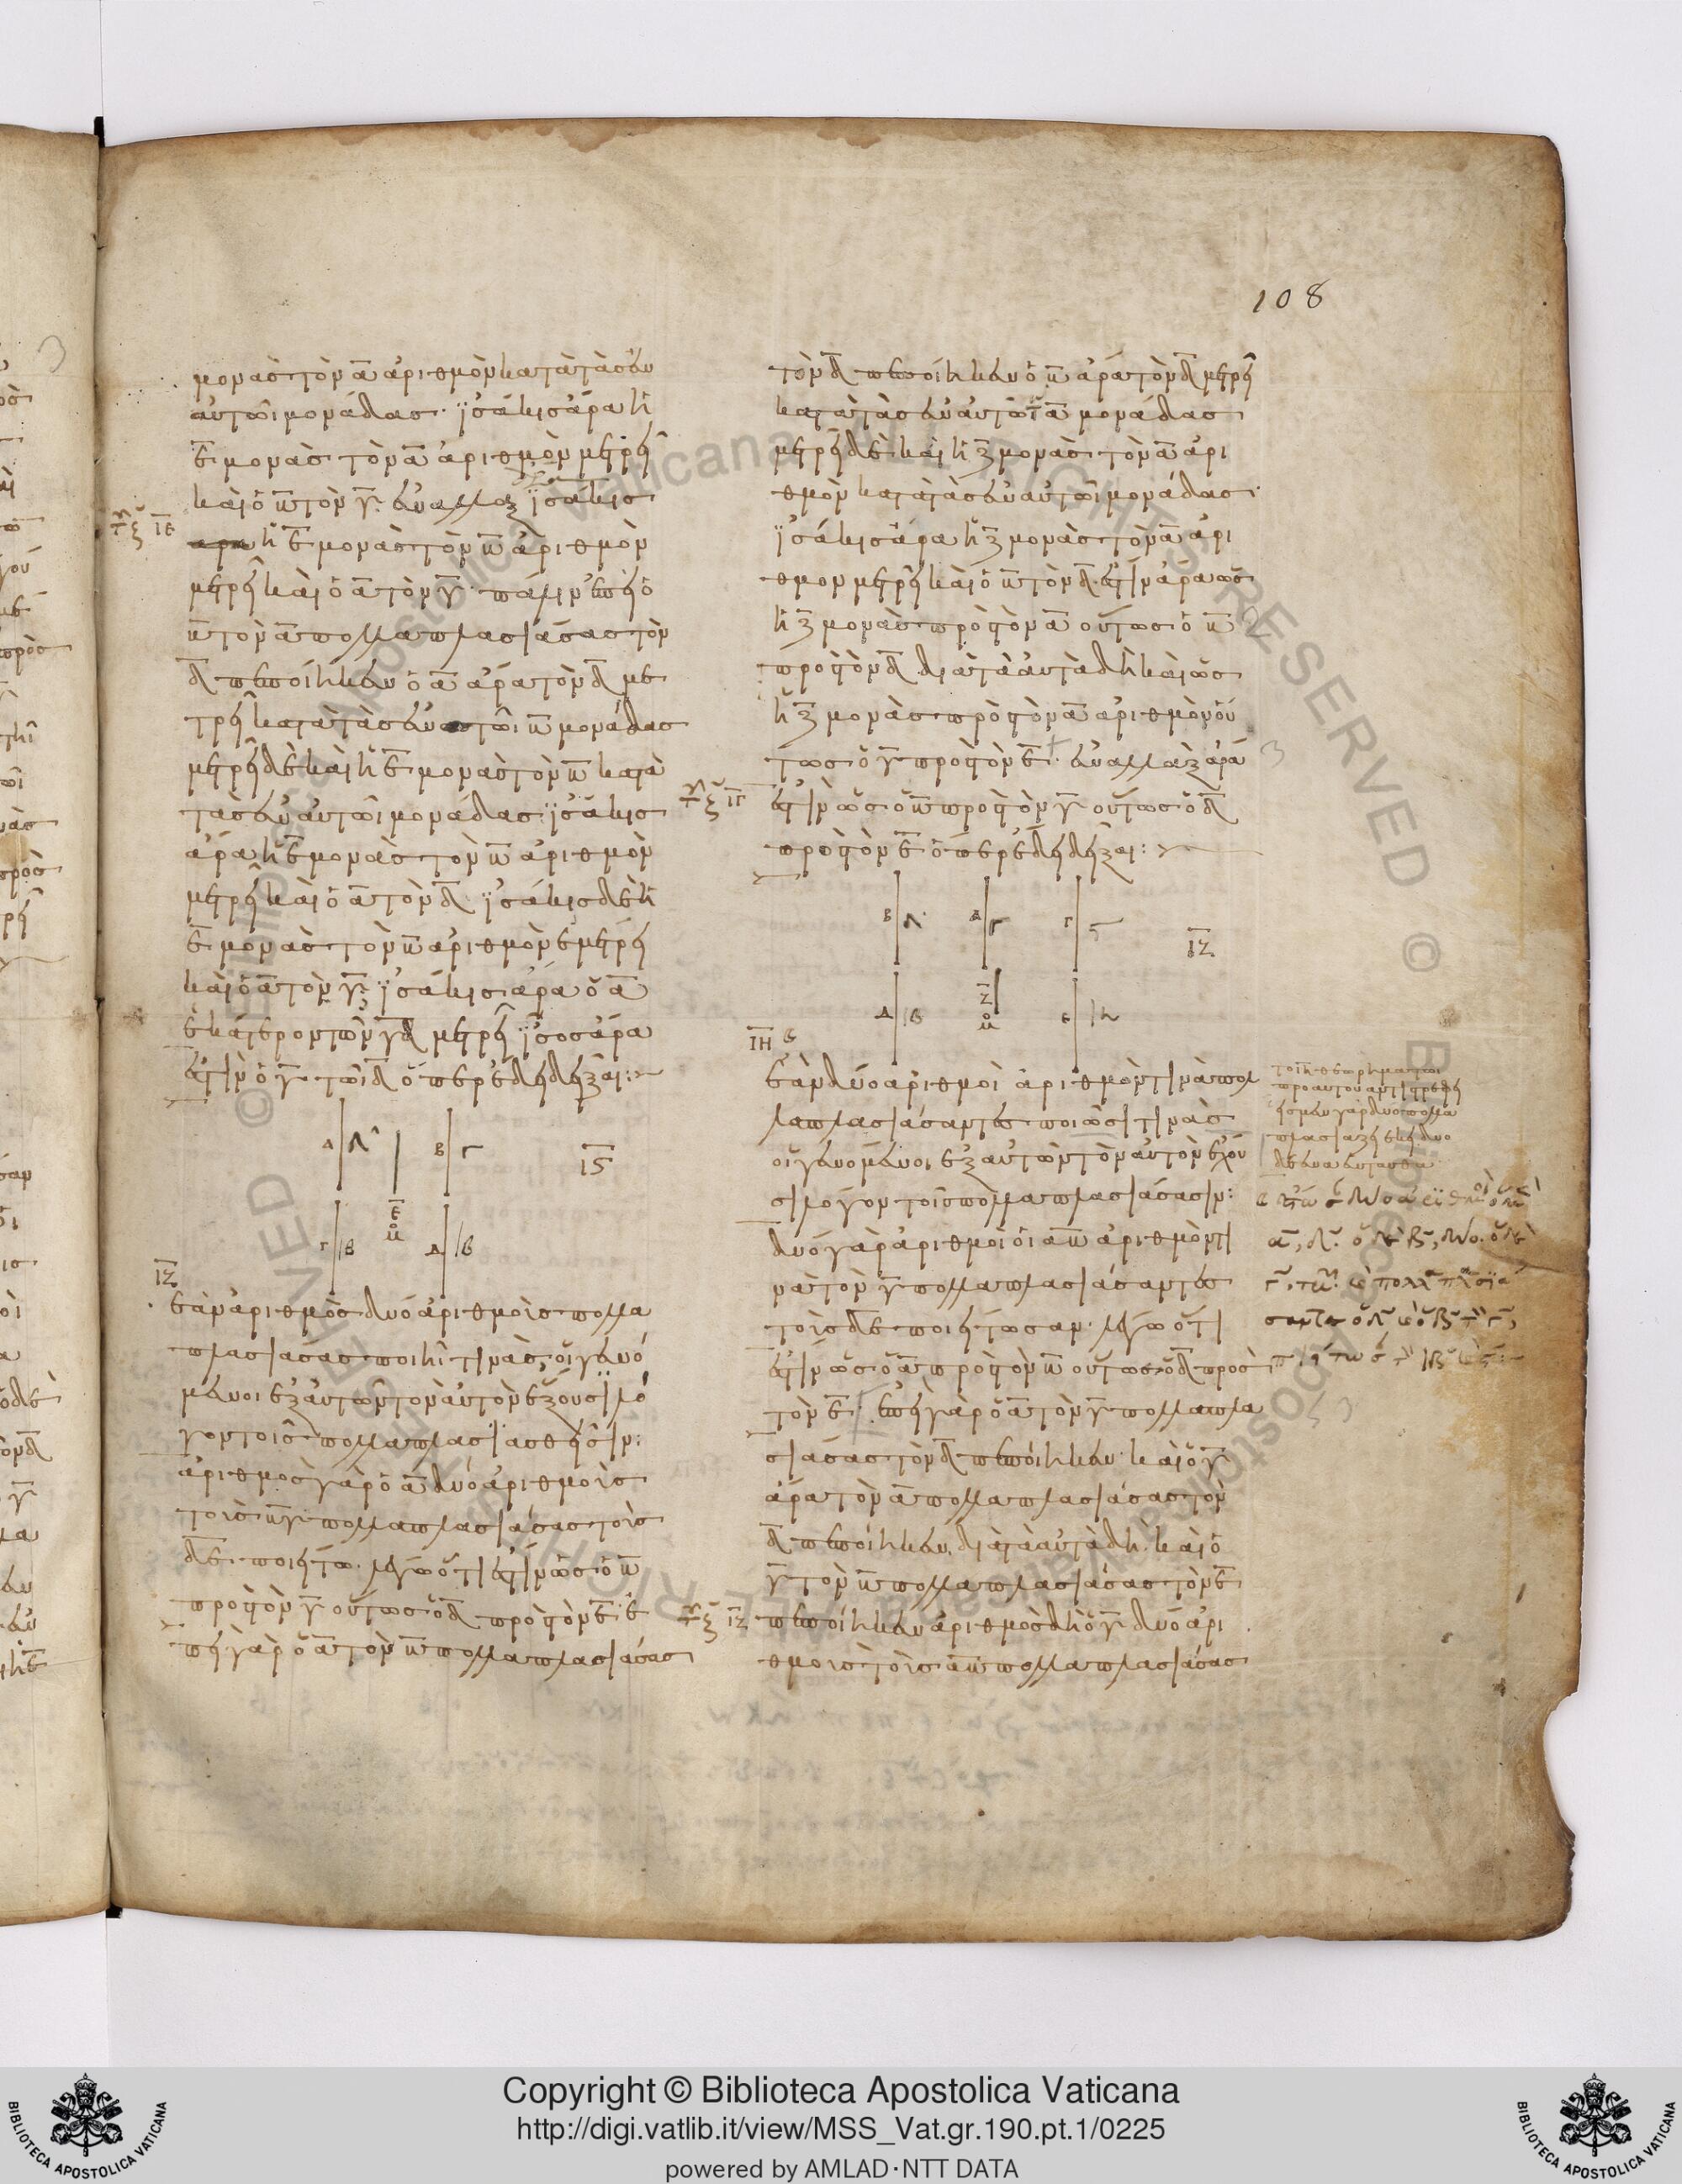 108
μονὰς τὸν α̅ ἀριθμὸν κατὰ τὰς ἐν
αὐτῶι μονάδας· ἰσάκις ἄρα ἡ
ε̅ μονὰς τὸν α̅ ἀριθμὸν μετρεῖ
καὶ ὁ β̅ τὸν γ̅· ἐναλλὰξ ἰσάκις
ἄρα ἡ ε̅ μονὰς τὸν β̅ ἀριθμὸν
μετρεῖ καὶ ὁ α̅ τὸν γ̅· πάλιν ἐπεὶ ὁ
β̅ τὸν α̅ πολλαπλασιάσας τὸν
δ̅ πεποίηκεν ὁ α̅ ἄρα τὸν δ̅ με
τρεῖ κατὰ τὰς ἐν τῶι β̅ μονάδας
μετρεῖ δὲ καὶ ἡ ε̅ μονὰς τὸν β̅ κατὰ
τὰς ἐν αὐτῶι μονάδας ἰσάκις
ἄρα ἡ ε̅ μονὰς τὸν β̅ ἀριθμὸν
μετρεῖ καὶ ὁ α̅ τὸν δ̅· ἰσάκις δὲ ἡ
ε̅ μονὰς τὸν β̅ ἀριθμὸν ἐμέτρει
καὶ ὁ α̅ τὸν γ̅· ἰσάκις ἄρα ὁ α̅
ἑκάτερον τῶν γ̅δ̅ μετρεῖ ἴσος ἄρα
ἐστὶν ὁ γ̅ τῶι δ̅ ὅπερ ἔδει δεῖξαι:
Α Β
Ι̅Ϛ̅
Ε̅
Γ Β Δ Β
Ι̅Ζ̅
ἐὰν ἀριθμὸς δύο ἀριθμοὺς πολλα
πλασιάσας ποιῆι τινὰς, οἱ γενό
μενοι ἐξ αὐτῶν τὸν αὐτὸν ἕξουσι λό
γον τοῖς πολλαπλασιασθεῖσιν:
ἀριθμὸς γὰρ ὁ α̅ δύο ἀριθμοὺς
τοὺς β̅γ̅ πολλαπλασιάσας τοὺς
δ̅ε̅ ποιείτω· λέγω ὅτι ἐστὶν ὡς ὁ β̅
πρὸς τὸν γ̅ οὕτως ὁ δ̅ πρὸς τὸν ε̅· ἐ
πεὶ γὰρ ὁ α̅ τὸν β̅ πολλαπλασιάσας
τὸν δ̅ πεποίηκεν ὁ β̅ ἄρα τὸν δ̅ μετρεῖ
κατὰ τὰς ἐν αὐτῶι α̅ μονάδας
μετρεῖ δὲ καὶ ἡ ζ̅ μονὰς τὸν α̅ ἀρι
θμὸν κατὰ τὰς ἐν αὐτῶι μονάδας·
ἰσάκις ἄρα ἡ ζ̅ μονὰς τὸν α̅ ἀρι
θμὸν μετρεῖ καὶ ὁ β̅ τὸν δ̅· ἔστιν ἄρα ὡς
ἡ ζ̅ μονὰς πρὸς τὸν α̅ οὕτως ὁ β̅
πρὸς τὸν δ̅ διὰ τὰ αὐτὰ δὴ καὶ ὡς
ἡ ζ̅ μονὰς πρὸς τὸν α̅ ἀριθμὸν οὕ
τως ὁ γ̅ πρὸς τὸν ε̅· ἐναλλὰξ ἄρα
ἐστὶν ὡς ὁ β̅ πρὸς τὸν γ̅ οὕτως ὁ δ̅
πρὸς τὸν ε̅ ὅπερ ἔδει δεῖξαι:
Β Α Γ
Ι̅Ζ̅
Δ Β Ζ̅ Ε
Ι̅Η̅
ἐὰν δύο ἀριθμοὶ ἀριθμόν τινα πολ
λαπλασιάσαντες ποιῶσι τινὰς
οἱ γενόμενοι ἐξ αὐτῶν τὸν αὐτὸν ἕξου
σι λόγον τοῖς πολλαπλασιάσασιν:
δύο γὰρ ἀριθμοὶ οἱ α̅β̅ ἀριθμόν τι
να τὸν γ̅ πολλαπλασιάσαντες
τοὺς δ̅ε̅ ποιείτωσαν· λέγω ὅτι
ἐστὶν ὡς ὁ α̅ πρὸς τὸν β̅ οὕτως ὁ δ̅ πρὸς
τὸν ε̅· ἐπεὶ γὰρ ὁ α̅ τὸν γ̅ πολλαπλα
σιάσας τὸν δ̅ πεποίηκεν· καὶ ὁ γ̅
ἄρα τὸν α̅ πολλαπλασιάσας τὸν
δ̅ πεποίηκεν. διὰ τὰ αὐτὰ δὴ καὶ ὁ
γ̅ τὸν β̅ πολλαπλασιάσας τὸν ε̅
πεποίηκεν ἀριθμὸς δὴ ὁ γ̅ δύο ἀρι
θμοὺς τοὺς α̅β̅ πολλαπλασιάσας
Copyright © Biblioteca Apostolica Vaticana
http://digi.vatlib.it/view/MSS_Vat.gr.190.pt.1/0225
powered by AMLAD·NTT DATA
BIBLIOTECA APOSTOLICA VATICANA
BIBLIOTECA APOSTOLICA VATICANA